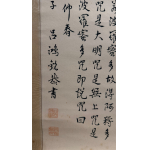 波羅蜜多故得阿耨多
是大明咒是無上咒是
波羅蜜多咒即說咒曰
仲春
子 呂鴻 恭書